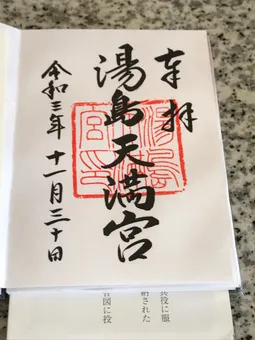 奉拝
湯島天満宮
令和三年十一月三十日
兵役に服
納された
図に役